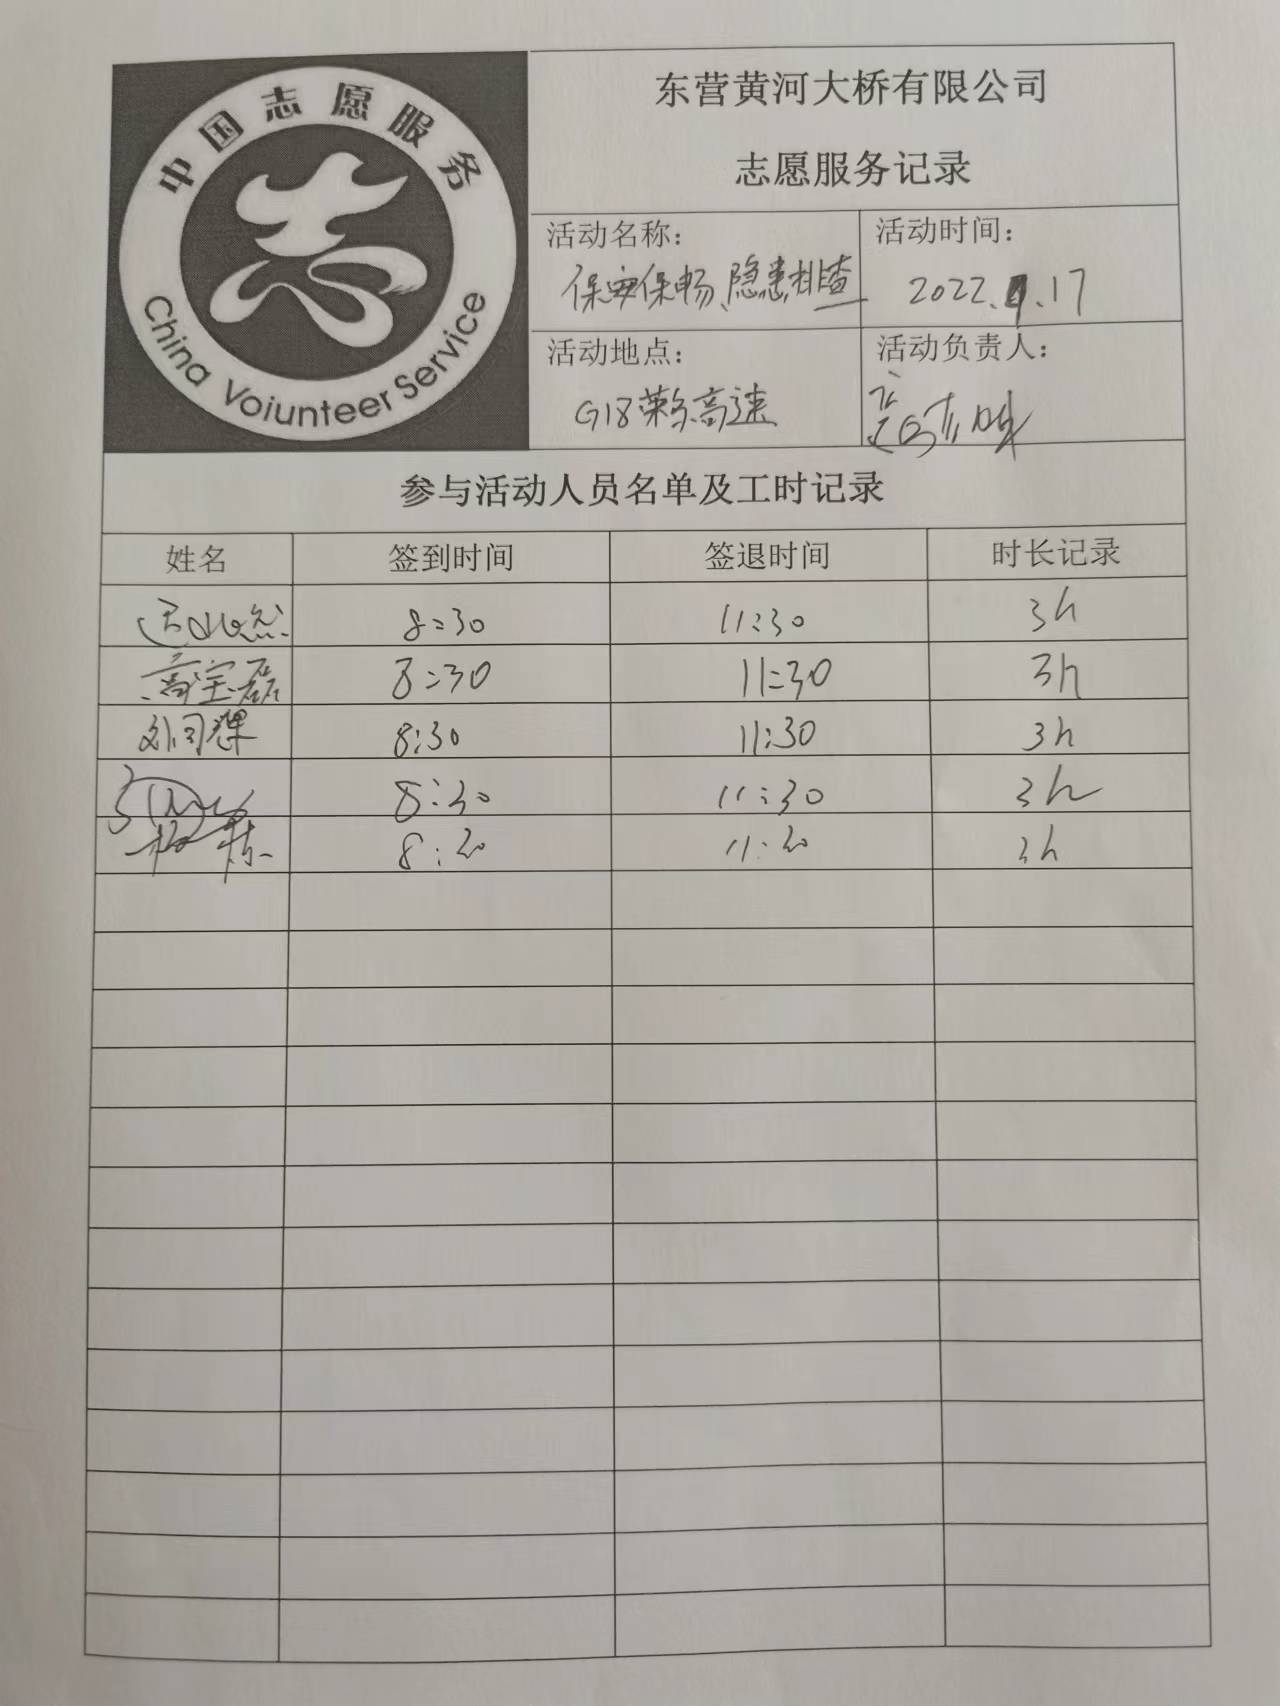 中国志愿服务
China Voiunteer Service
东营黄河大桥有限公司
志愿服务记录
活动名称：
保安保畅、隐患排查
活动时间：
2022. .17
活动地点：
G18荣乌高速
活动负责人：
参与活动人员名单及工时记录
姓名 签到时间 签退时间 时长记录
8:30 11:30 3h
高宝磊 8:30 11:30 3h
刘同想 8:30 11:30 3h
8:30 11:30 3h
8:30 11:30 3h